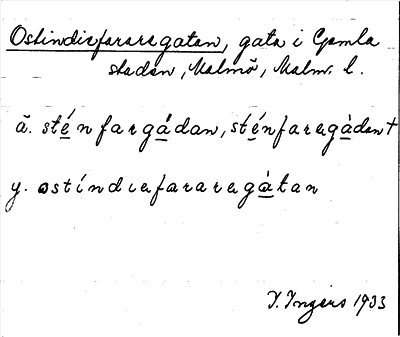 Ostindiefararegatan, gata i Gamla
staden, Malmö, Malm. l.
ä. sténfargádan, sténfaragàdan +
y. ostíndiefararegàtan
I. Ingers 1933